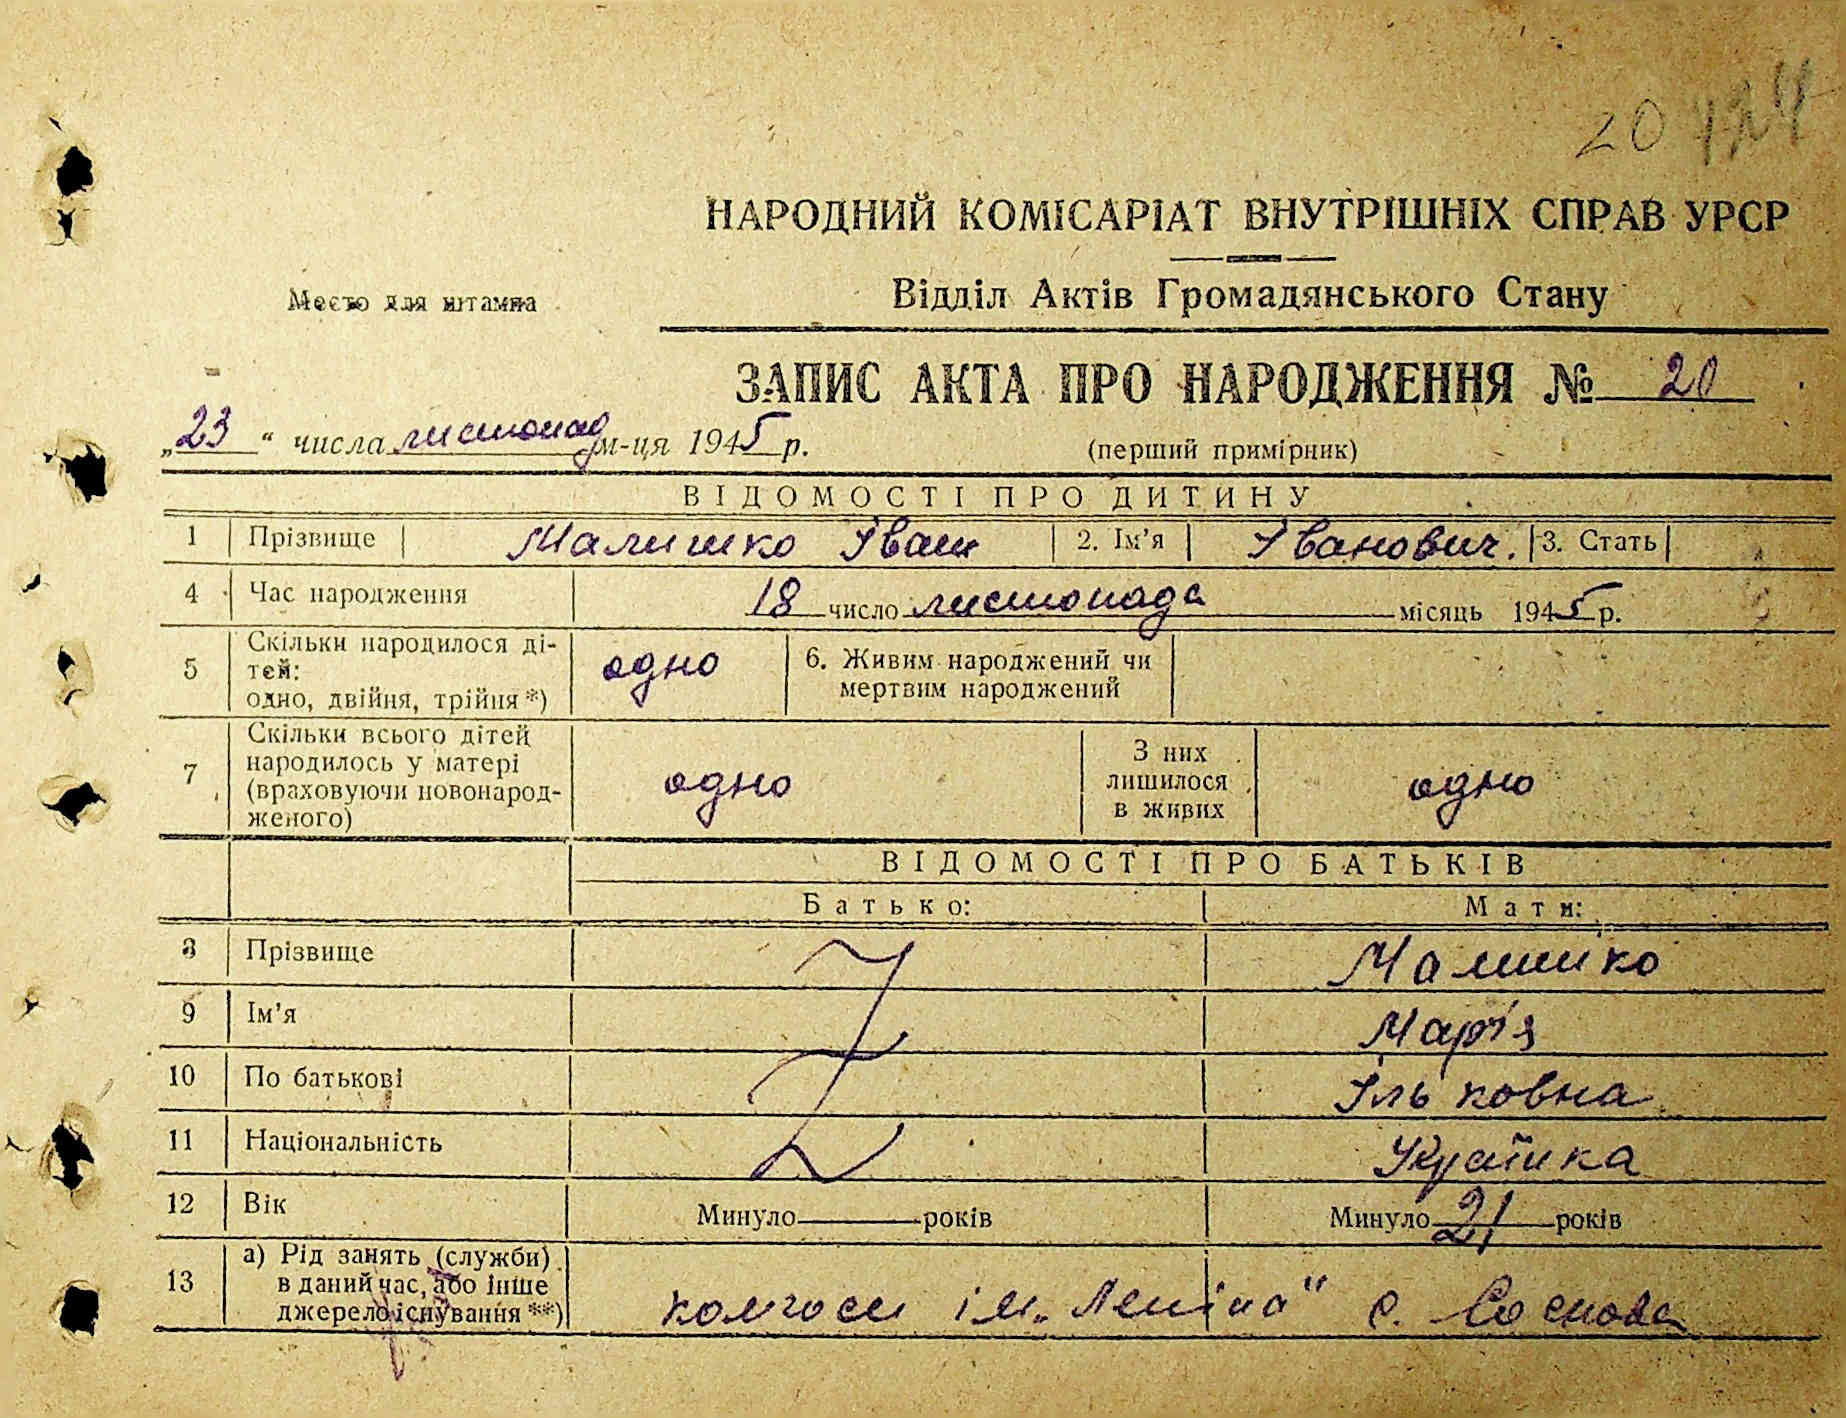 20 424
НАРОДНИЙ КОМІСАРІАТ ВНУТРІШНІХ СПРАВ УРСР
Место для штампа
Відділ Актів Громадянського Стану
ЗАПИС АКТА ПРО НАРОДЖЕННЯ № 20
„23“ числа листопад м-ця 1945 р.
(перший примірник)
ВІДОМОСТІ ПРО ДИТИНУ
1 Прізвище Малишко Іван 2. Ім'я Іванович. 3. Стать
4 Час народження 18 число листопада місяць 1945 р.
5 Скільки народилося ді-
тей:
одно, двійня, трійня*) одно 6. Живим народжений чи
мертвим народжений
7 Скільки всього дітей
народилось у матері
(враховуючи новонарод-
женого) одно З них
лишилося
в живих одно
ВІДОМОСТІ ПРО БАТЬКІВ
Батько: Мати:
8 Прізвище Малишко
9 Ім'я Марія
10 По батькові Ільковна
11 Національність Українка
12 Вік Минуло років Минуло 21 років
13 а) Рід занять (служби)
в даний час, або інше
джерело існування**) колгосп ім. „Леніна" с. Соснова